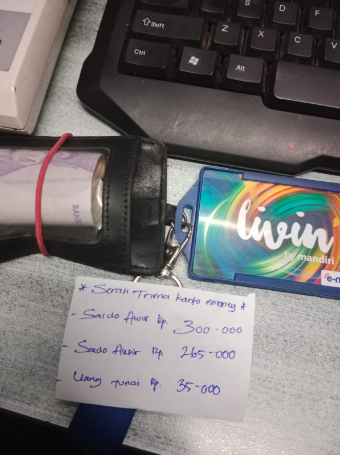 S
D
F
Shift
Z
X
C
V
Ctrl
Alt
BANK
livin'
by mandiri
e-m
* Serah Trima kartu emoney *
- Saldo Awal Rp. 300.000
- Saldo Akhir Rp. 265-000
- Uang tunai Rp. 35-000